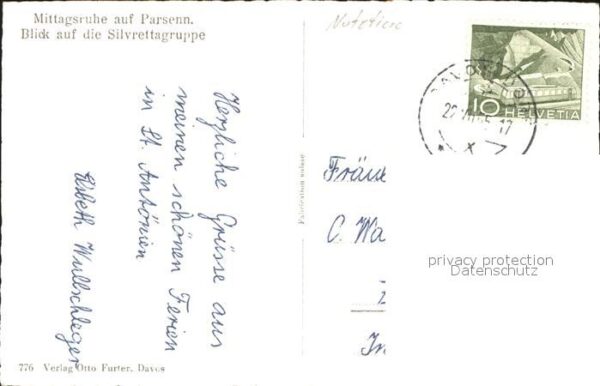 Mittagsruhe auf Parsenn.
Blick auf die Silvrettagruppe
Herzliche Grüsse aus
meinen schönen Ferien
in St. Antönien
Elsbeth Wullschleger
776 Verlag Otto Furter, Davos
Fabrication suisse
10 HELVETIA
Fräule
C. Wa
privacy protection
Datenschutz